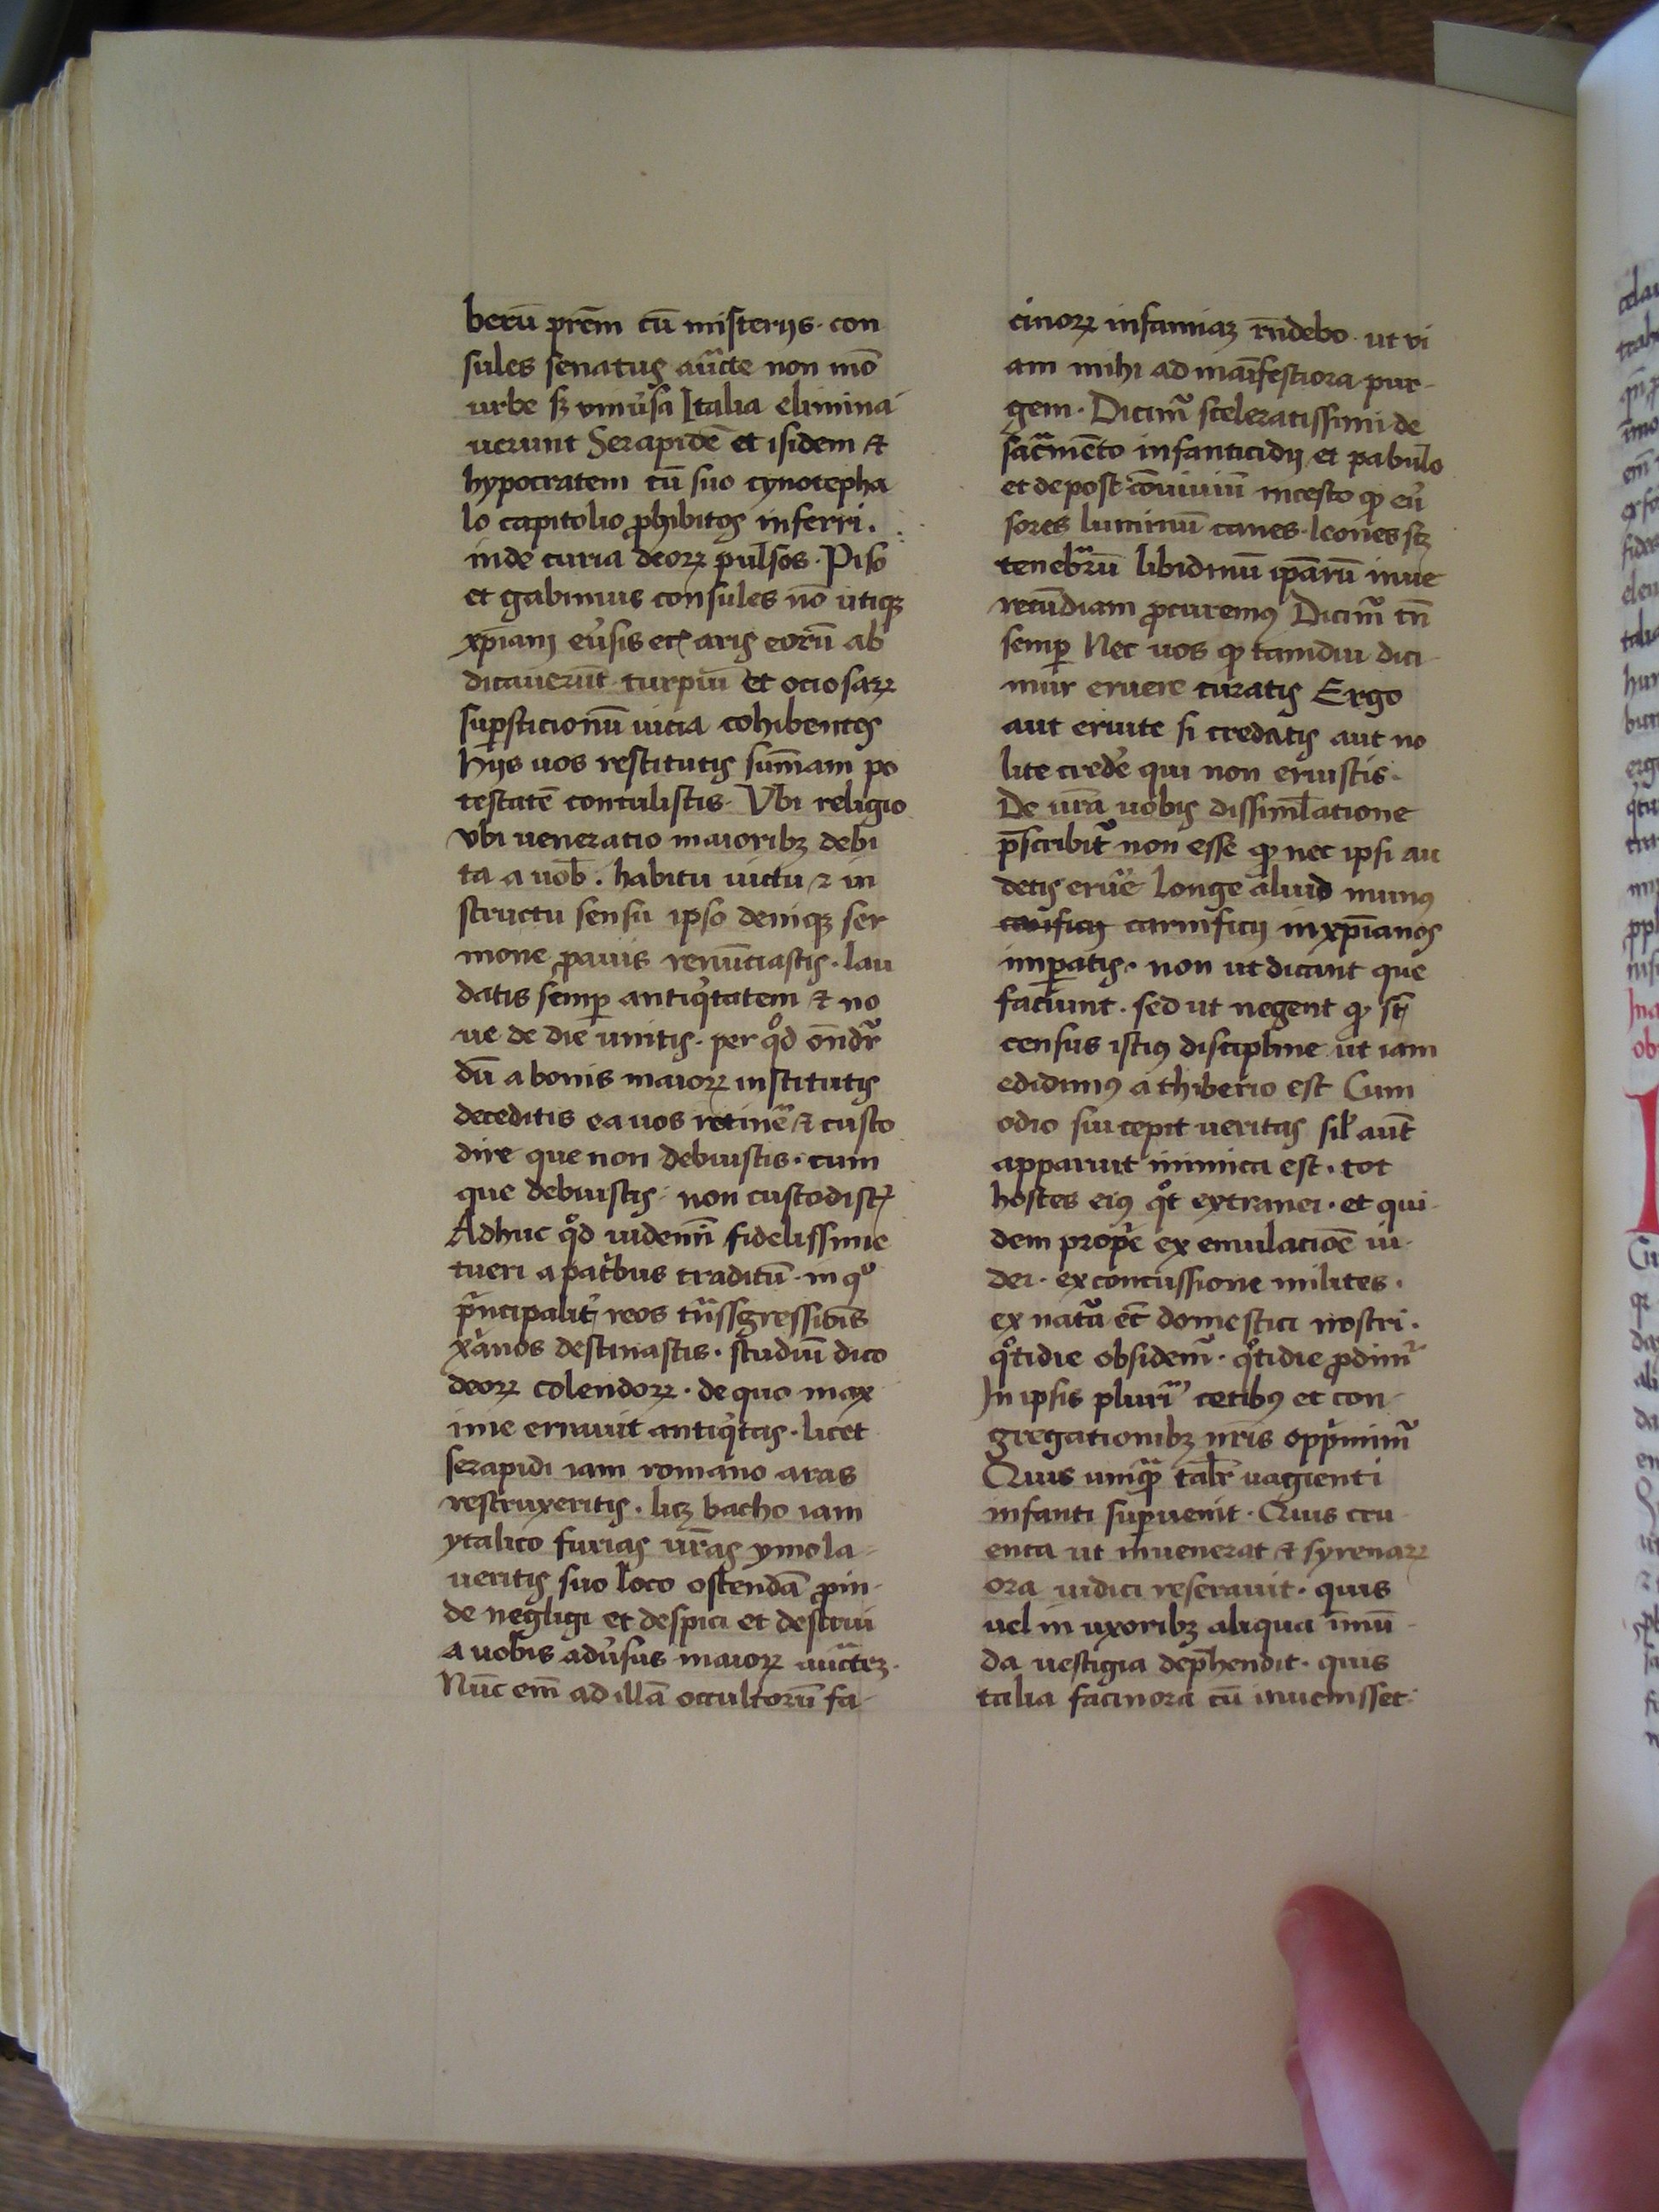 berū prēm cū misterijs · con
sules senatus auctē non mō
urbe sꝫ vniu̾sa Italia elimina
uerunt Serapidē et isidem ⁊
hypocratem cū suo cynocepha
lo capitolio ꝓhibitos inferri .
inde curia deoꝝ pulsos · Piso
et gabinius consules nō utiqꝫ
xp̄iani eu̾sis etc̄ aris eorū ab
dicauerūt turpiū et ociosaꝝ
suꝑsticionū uicia cohibentes
hijs uos restitutis summ̄am po
testatē contulistis · Vbi religio
vbi ueneratio maioribꝫ debi
ta a uob̄ . habitu uictu ⁊ in
structu sensu ipso deniqꝫ ser
mone ꝓauis renūciastis · lau
datis semꝑ antiqͥtatem ⁊ no
ue de die uiuitis · per qͦd on̄dr̄
dū a bonis maioꝝ institutis
deceditis ea uos retinē ⁊ custo
dire que non debuistis · cum
que debuistis · non custodist̄
Adhuc qͦd uidemī fidelissime
tueri a patͥbus traditū · in qͦ
pͥncipalit̾ reos tͣnssgressiōis
xͥanos destinastis · studiū dico
deoꝝ colendoꝝ · de quo max
ime erruuit antiqͥtas · licet
serapidi iam romano aras
restruxeritis · lꝫ bacho iam
ytalico furias ur̄as ymola
ueritis suo loco ostendā ꝓin-
de negligi et despici et destrui
a uobis adu̾sus maioꝝ auctēꝫ ·
Nūc em̄ ad illā occultorū fa-
cinoꝝ infamiaꝫ rn̄debo · ut vi
am mihi ad manīfestiora pur-
gem · Dicimᷣ sceleratissimi de
sacͣmēto infanticidij et pabulo
et de post cōuiuiū incesto qꝫ eu̾
sores luminū canes · leones scꝫ
tenebͣrū libidinū ip̄arū inue
recūdiam ꝓcuremꝰ Dicimᷣ tn̄
semꝑ Nec uos qꝫ tamdiu dici
mur eruere curatis Ergo
aut eruite si credatis aut no
lite credēe qui non eruistis ·
De ur̄a uobis dissiml̄atione
p̄scribitᷣ non esse qꝫ nec ipsi au
detis eru̾e Longe aliud munꝰ
carificij carnificij in xp̄ianos
imꝑatis · non ut dicant que
faciunt · sed ut negent qꝫ st̄
census istiꝰ discipline ut iam
edidimꝰ a thiberio est Cum
odio sui cepit ueritas sil̾ aut̄
apparuit inimica est · tot
hostes eiꝰ qͦt extranei · et qui-
dem propͥe ex emulaciōe iu-
dei · ex concussione milites ·
ex natͣa et̄ domestici nostri ·
qͦtidie obsidemᷣ · qͦtidie ꝓdimᷣ
In ipsis plurīͣ cetibꝰ et con-
gregationibꝫ nr̄is oppͥmimᷣ
Quis unqͣꝫ talr̾ uagienti
infanti suꝑuenit · Quis cru-
enta ut inuenerat ⁊ syrenaꝝ
ora iudici reserauit · quis
uel in uxoribꝫ aliqua īmū-
da uestigia dep̄hendit · quis
talia facinora cū inuenisset ·